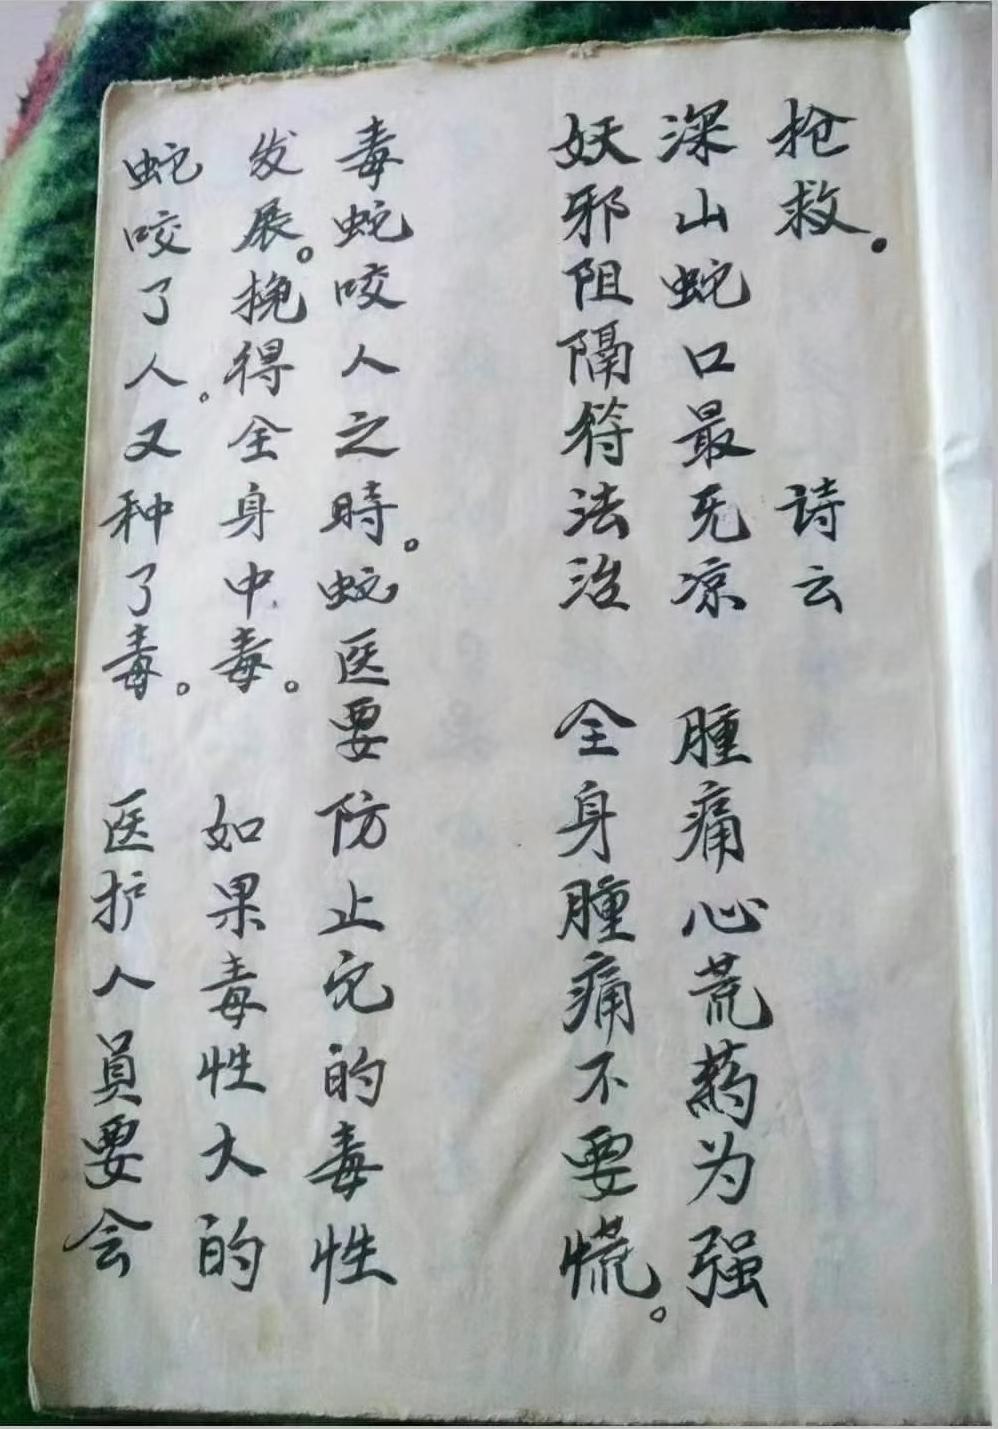 抢救。 诗云
深山蛇口最无凉 腫痛心荒药为强
妖邪阻隔符法治 全身腫痛不要慌。
毒蛇咬人之時。蛇医要防止它的毒性
发展。挽得全身中毒。 如果毒性大的
蛇咬了人。又种了毒。 医护人員要会